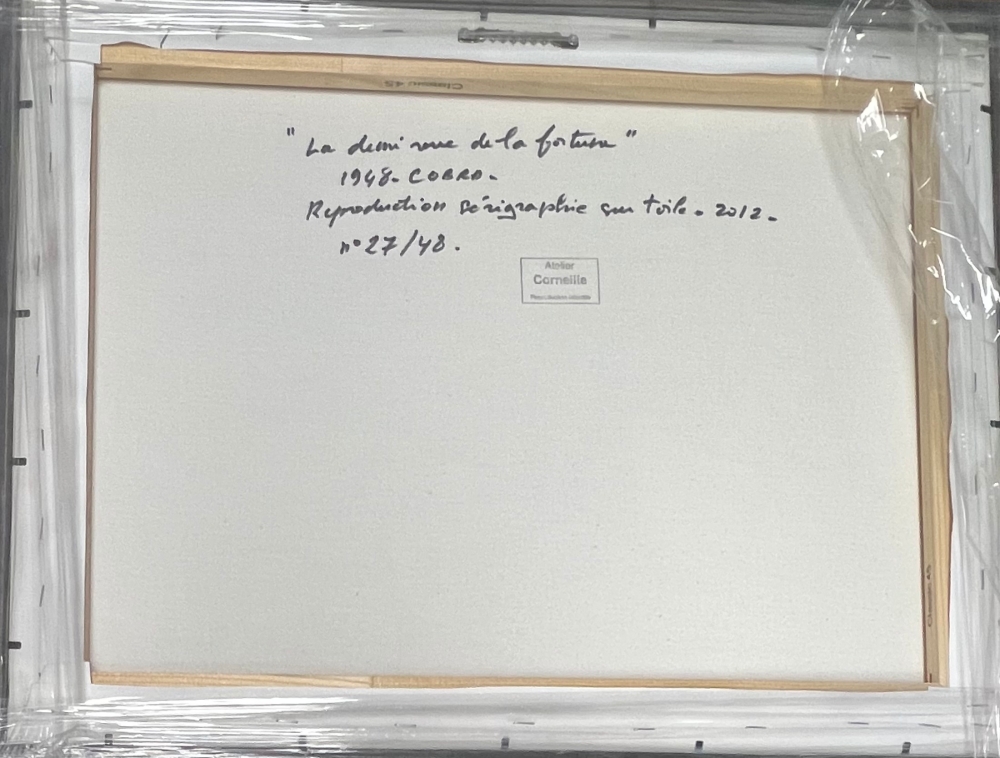 Classic 45
" La demi roue de la fortune "
1948. COBRA.
Reproduction sérigraphie sur toile. 2012.
n° 27/48.
Atelier
Corneille
Classic 45